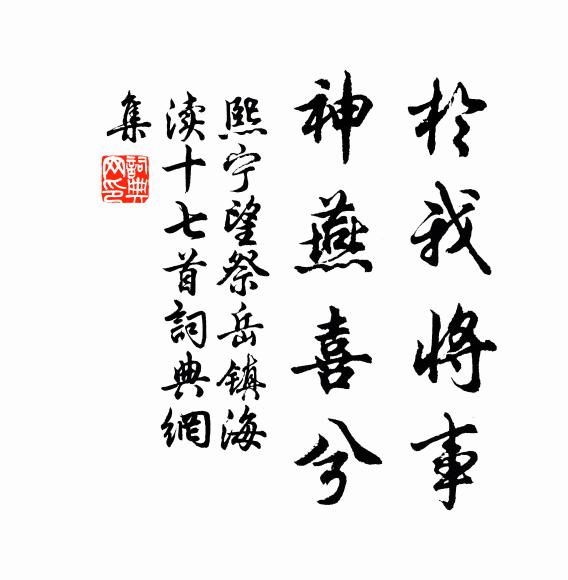 於我将事
神燕喜兮
熙宁望祭岳镇海
渎十七首詞典網
集
詞典
网印